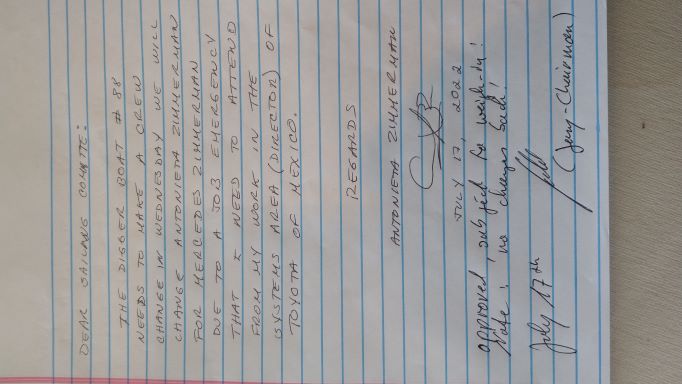 DEAR SAILING COMATTE:
THE DIGGER BOAT # 88
NEEDS TO MAKE A CREW
CHANGE IN WEDNESDAY WE WILL
CHANGE ANTONIETA ZIMMERMAN
FOR MERCEDES ZIMMERMAN
DUE TO A JOB EMERGENCY
THAT I NEED TO ATTEND
FROM MY WORK IN THE
SYSTEMS AREA (DIRECTOR) OF
TOYOTA OF MEXICO.
REGARDS
ANTONIETA ZIMMERMAN
JULY 17, 2022
approved, subject to weigh-in!
Note: no changes back!
July 17th
(Jury-Chairman)